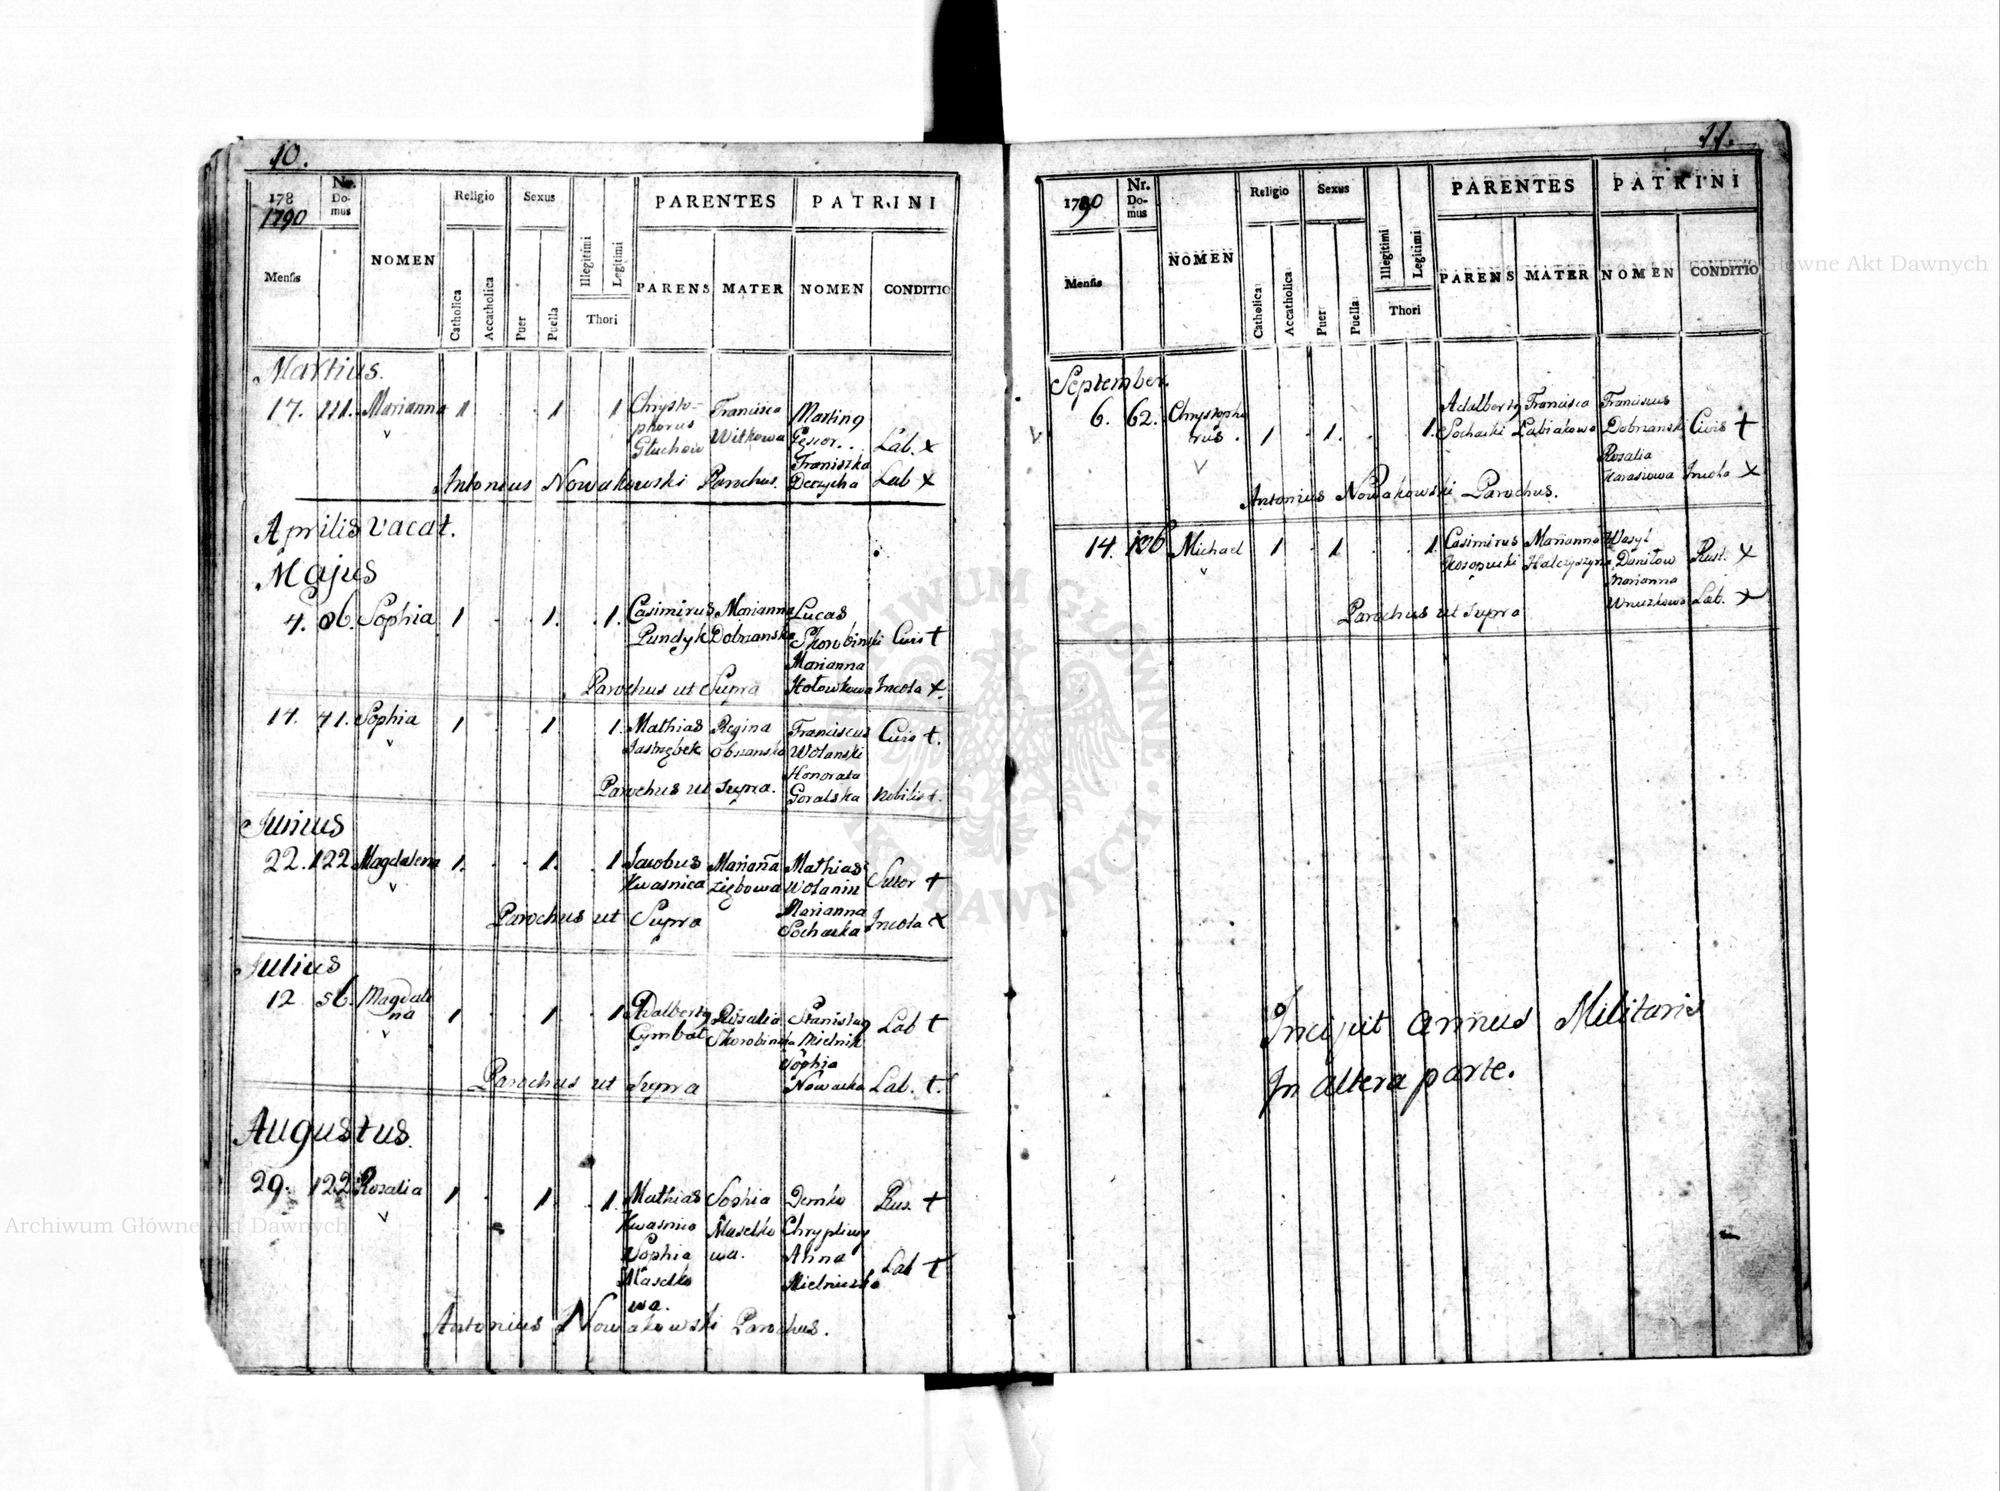 10.
178 Nr. Do-mus NOMEN Religio Sexus Illegitimi Legitimi PARENTES PATRINI
1790
Mensis Catholica Accatholica Puer Puella Thori PARENS MATER NOMEN CONDITIO
Martius.
17. 111. Marianna 1 1 1 Chrysto- Francisca Marting
phorus Witkowa Gesior..
Głuchow Lab. x
Franiszka
Antonius Nowakowski Parochus. Derzycha Lab x
Aprilis vacat.
Majus
4. 86. Sophia 1 1. 1. Casimirus Marianna Lucas
Pundyk Dobrianska Skorobinski Civis †
Marianna
Parochus ut Supra Hołowkowa Incola x.
14. 41. Sophia 1 1 1. Mathias Regina Franciscus Civis †.
Jastrzębek Obrzanska Wolanski
Honorata
Parochus ut supra. Goralska Nobilis †.
Junius
22. 122 Magdalena 1. 1. 1 Jacobus Mariana Mathias
Kwasnica Ziębowa Wolanin Sutor †
Marianna
Parochus ut Supra Sochacka Incola x
Julius
12 56. Magdale
na 1 1 1 Adalbertg Rosalia Stanislag Lab †
Cymbal Skorobinska Mielnik
Sophia
Parochus ut supra Nowacka Lab. †.
Augustus.
29. 122 Rosalia 1 1 1. Mathias Sophia Demko Rus. †
Kwasnica Maselko Chrypliwy
Sophia wa. Anna
Maselko Mielniczka Lab †
wa.
Antonius Nowakowski Parochus.
11.
1790 Nr. Do-mus NOMEN Religio Sexus Illegitimi Legitimi PARENTES PATRINI
Mensis Catholica Accatholica Puer Puella Thori PARENS MATER NOMEN CONDITIO
September.
6. 62. Chrystopho Adalbertg Francisca Franciscus
rus. 1 1. 1. Sochacki Labiakowa Dobrianski Civis †
Rosalia
Karasiowa Incola x
Antonius Nowakowski Parochus.
14. 106 Michael 1 1 1 Casimirus Marianna Wasyl
Halczyszyna Daniłow Rust. x
Marianna
Wnuczkowa Lab. x
Parochus ut supra
Incipit annus Militaris
In altera parte.
ARCHIWUM GŁÓWNE AKT DAWNYCH
Archiwum Główne Akt Dawnych
Archiwum Główne Akt Dawnych